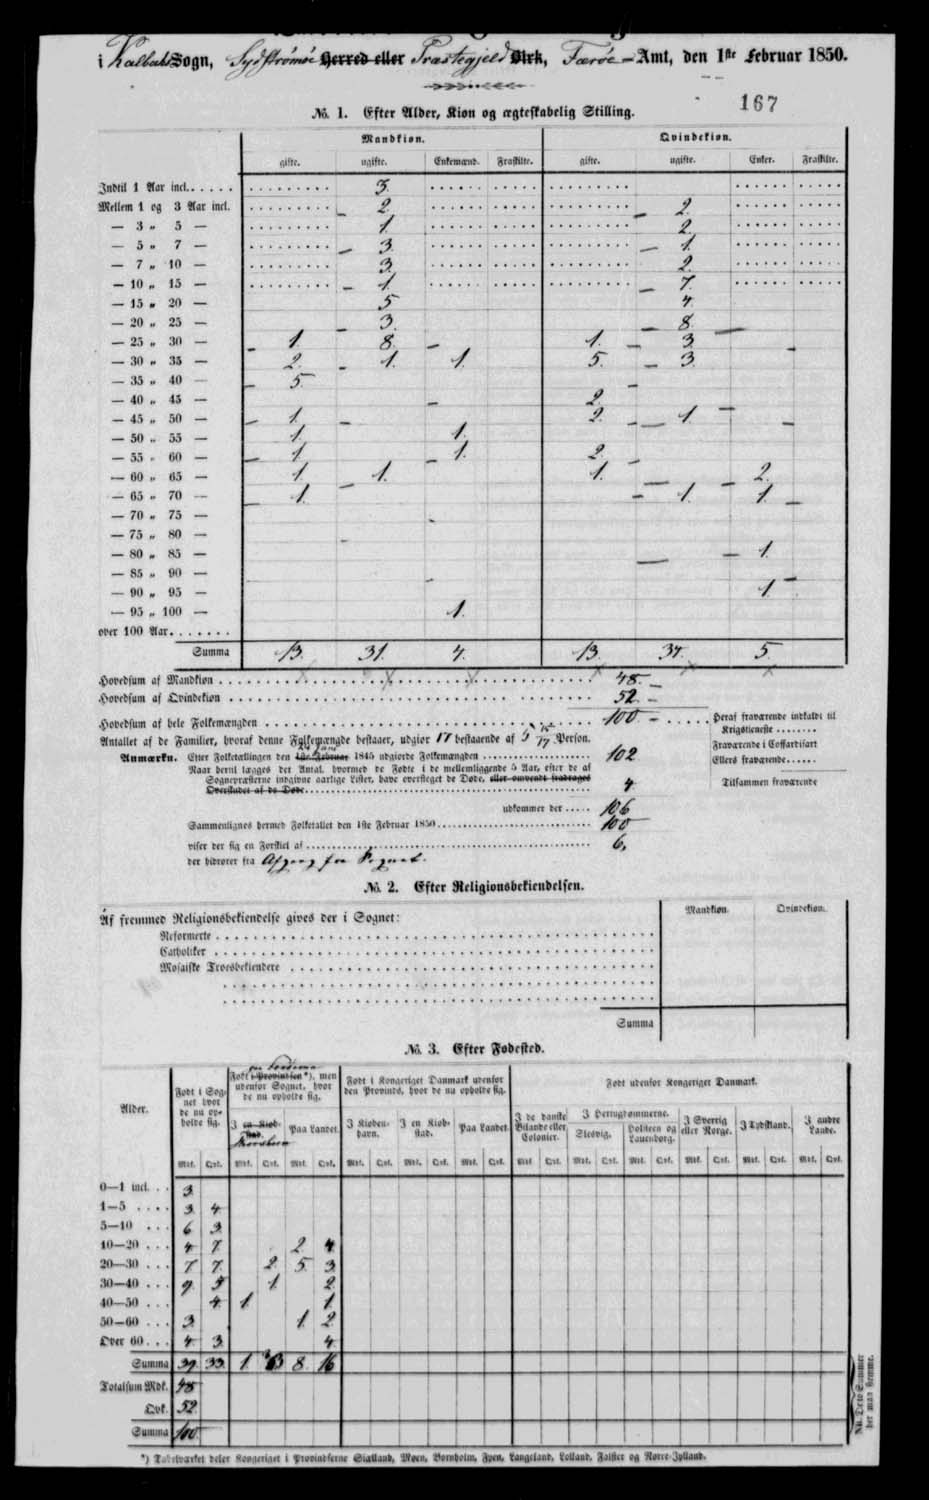 i Kalbaks Sogn, Sydstrømøe Herred eller Præstegjeld Birk, Færøe - Amt, den 1ste Februar 1850.
167
No. 1. Efter Alder, Kion og ægteskabelig Stilling.
Mandkion. Qvindekion.
gifte. ugifte. Enkemænd. Fraskilte. gifte. ugifte. Enker. Fraskilte.
Indtil 1 Aar incl. 3.
Mellem 1 og 3 Aar incl. 2. 2.
— 3 „ 5 — 1. 2.
— 5 „ 7 — 3. 1.
— 7 „ 10 — 3. 2.
— 10 „ 15 — 1. 7.
— 15 „ 20 — 5 4.
— 20 „ 25 — 3. 8.
— 25 „ 30 — 1. 8. 1. 3.
— 30 „ 35 — 2. 1. 1. 5. 3.
— 35 „ 40 — 5
— 40 „ 45 — 2.
— 45 „ 50 — 1. 2. 1.
— 50 „ 55 — 1. 1.
— 55 „ 60 — 1. 1. 2.
— 60 „ 65 — 1. 1. 1. 2.
— 65 „ 70 — 1. 1. 1.
— 70 „ 75 —
— 75 „ 80 —
— 80 „ 85 — 1.
— 85 „ 90 —
— 90 „ 95 — 1.
— 95 „ 100 — 1.
over 100 Aar.
Summa 13. 31. 4. 13. 34. 5.
Hovedsum af Mandkion 48.
Hovedsum af Qvindekion 52.
Hovedsum af hele Folkemængden 100
Heraf fraværende indkaldt til
Krigstieneste
Fraværende i Coffardifart
Ellers fraværende
Tilsammen fraværende
Antallet af de Familier, hvoraf denne Folkemængde bestaaer, udgiør 17 bestaaende af 5 15/17 Person.
Anmærkn. Efter Folketællingen den 1ste Februar 1845 udgiorde Folkemængden 102
Naar dertil lægges det Antal, hvormed de Fødte i de mellemliggende 5 Aar, efter de af
Sognepræsterne indgivne aarlige Lister, have oversteget de Døde, eller omvendt fradrages
Overskudet af de Døde 4
udkommer der 106
Sammenlignes hermed Folketallet den 1ste Februar 1850 100
viser der sig en Forskiel af 6,
der hidrører fra Afgang fra Sognet.
No. 2. Efter Religionsbekiendelsen.
Mandkion. Qvindekion.
Af fremmed Religionsbekiendelse gives der i Sognet:
Reformerte
Catholiker
Mosaiske Troesbekiendere
Summa
No. 3. Efter Fødested.
Alder.
Født i Sognet hvor de nu opholde sig.
Født i Provindsen *), men udenfor Sognet, hvor de nu opholde sig.
Født i Kongeriget Danmark udenfor den Provinds, hvor de nu opholde sig.
Født udenfor Kongeriget Danmark.
I en Kiøbstad. Thorshavn Paa Landet.
I Kiøbenhavn. I en Kiøbstad. Paa Landet.
I de danske Bilande eller Colonier. I Hertugdømmerne. Slesvig. Holsteen og Lauenborg. I Sverrig eller Norge. I Tydskland. I andre Lande.
Mdk. Qvk. Mdk. Qvk. Mdk. Qvk. Mdk. Qvk. Mdk. Qvk. Mdk. Qvk. Mdk. Qvk. Mdk. Qvk. Mdk. Qvk. Mdk. Qvk. Mdk. Qvk. Mdk. Qvk.
0—1 incl. 3.
1—5 3. 4.
5—10 6 3.
10—20 4. 7. 2. 4.
20—30 7 7. 2. 5. 3.
30—40 9. 5 1. 2.
40—50 4. 1. 1.
50—60 3. 1. 2.
Over 60 4. 3. 4.
Summa 39. 33. 1. 3 8. 16
Totalsum Mdk. 48
Qvk. 52.
Summa 100.
NB. Disse Summer
bør være eens.
*) Tabelværket deler Kongeriget i Provindserne Siælland, Møen, Bornholm, Fyen, Langeland, Lolland, Falster og Nørre-Jylland.